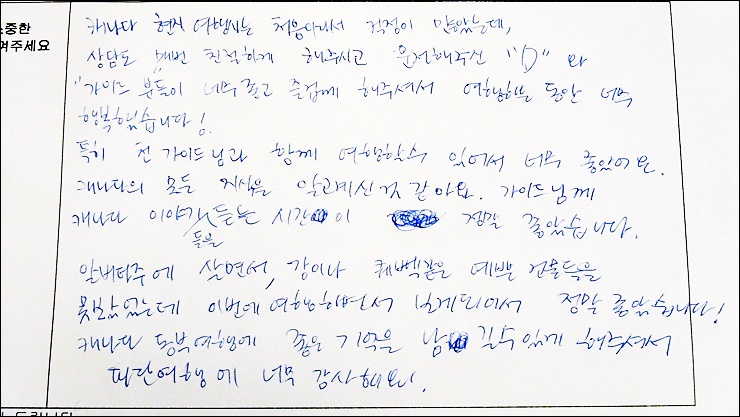 소중한
겨주세요
캐나다 현지 여행사는 처음이라서 걱정이 많았는데,
상담도 매번 친절하게 해주시고 운전해주신 "D" 와
"가이드 분들이 너무 좋고 즐겁게 해주셔서 여행하는 동안 너무
행복했습니다!
특히 천 가이드님과 함께 여행할수 있어서 너무 좋았어요.
캐나다의 모든 지식을 알고계신것 같아요. 가이드님께
캐나다 이야기 듣는 시간이 정말 좋았습니다.
들을
알버타주에 살면서, 강이나 퀘벡같은 예쁜 건물들을
못봤었는데 이번에 여행하면서 보게되어서 정말 좋았습니다!
캐나다 동부여행에 좋은 기억을 남길수있게 해주셔서
파란여행에 너무 감사해요.